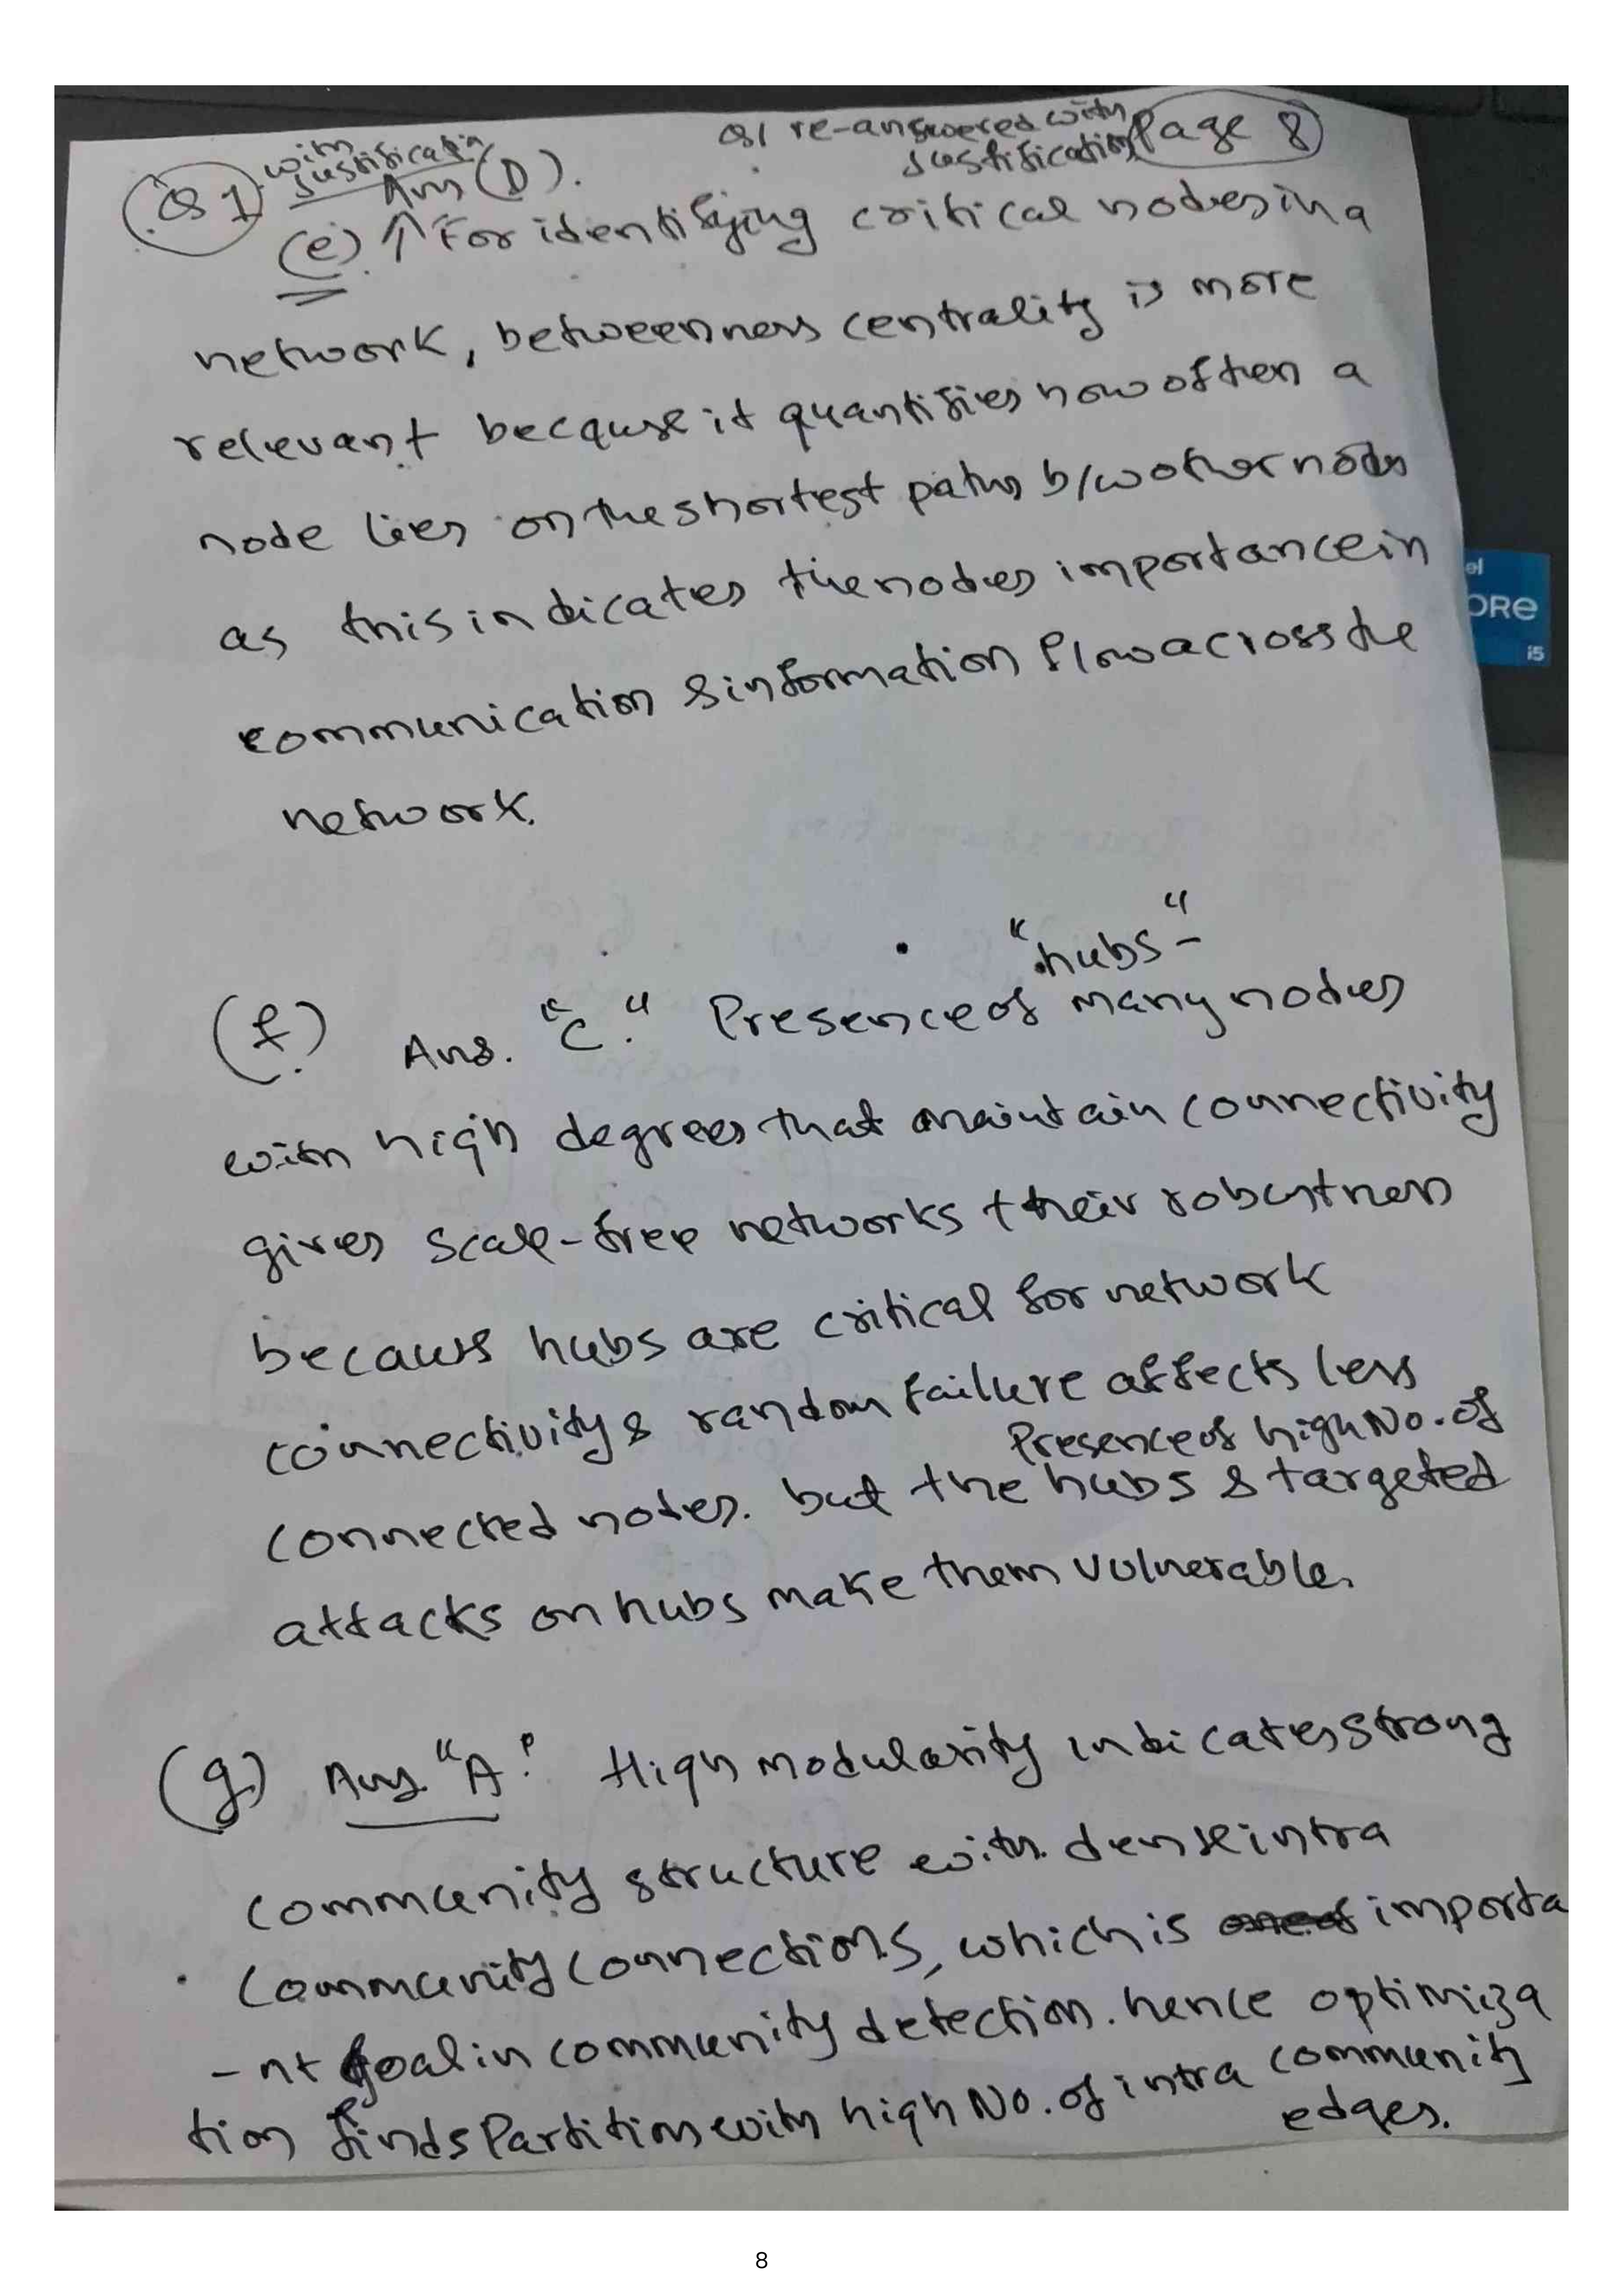 Q1 re-answered with
Justification
Page 8
Q1 with
Justification
Ans (D).
(e) ↑ For identifying critical nodes in a
network, betweenness centrality is more
relevant because it quantifies how often a
node lies on the shortest paths b/w other nodes
as this indicates the nodes importance in
communication & information flow across the
network.
"hubs"-
(f.) Ans. "C." Presence of many nodes
with high degrees that maintain connectivity
gives scale-free networks their robustness
because hubs are critical for network
connectivity & random failure affects less
Presence of high No. of
connected nodes. but the hubs & targeted
attacks on hubs make them vulnerable.
(g.) Ans. "A" High modularity indicates strong
community structure with dense intra
community connections, which is importa
-nt goal in community detection. hence optimiza
tion finds Partition with high No. of intra community
edges.
el
ORe
i5
8